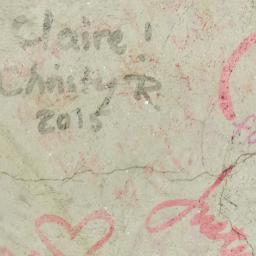 Claire!
Christy R
2015